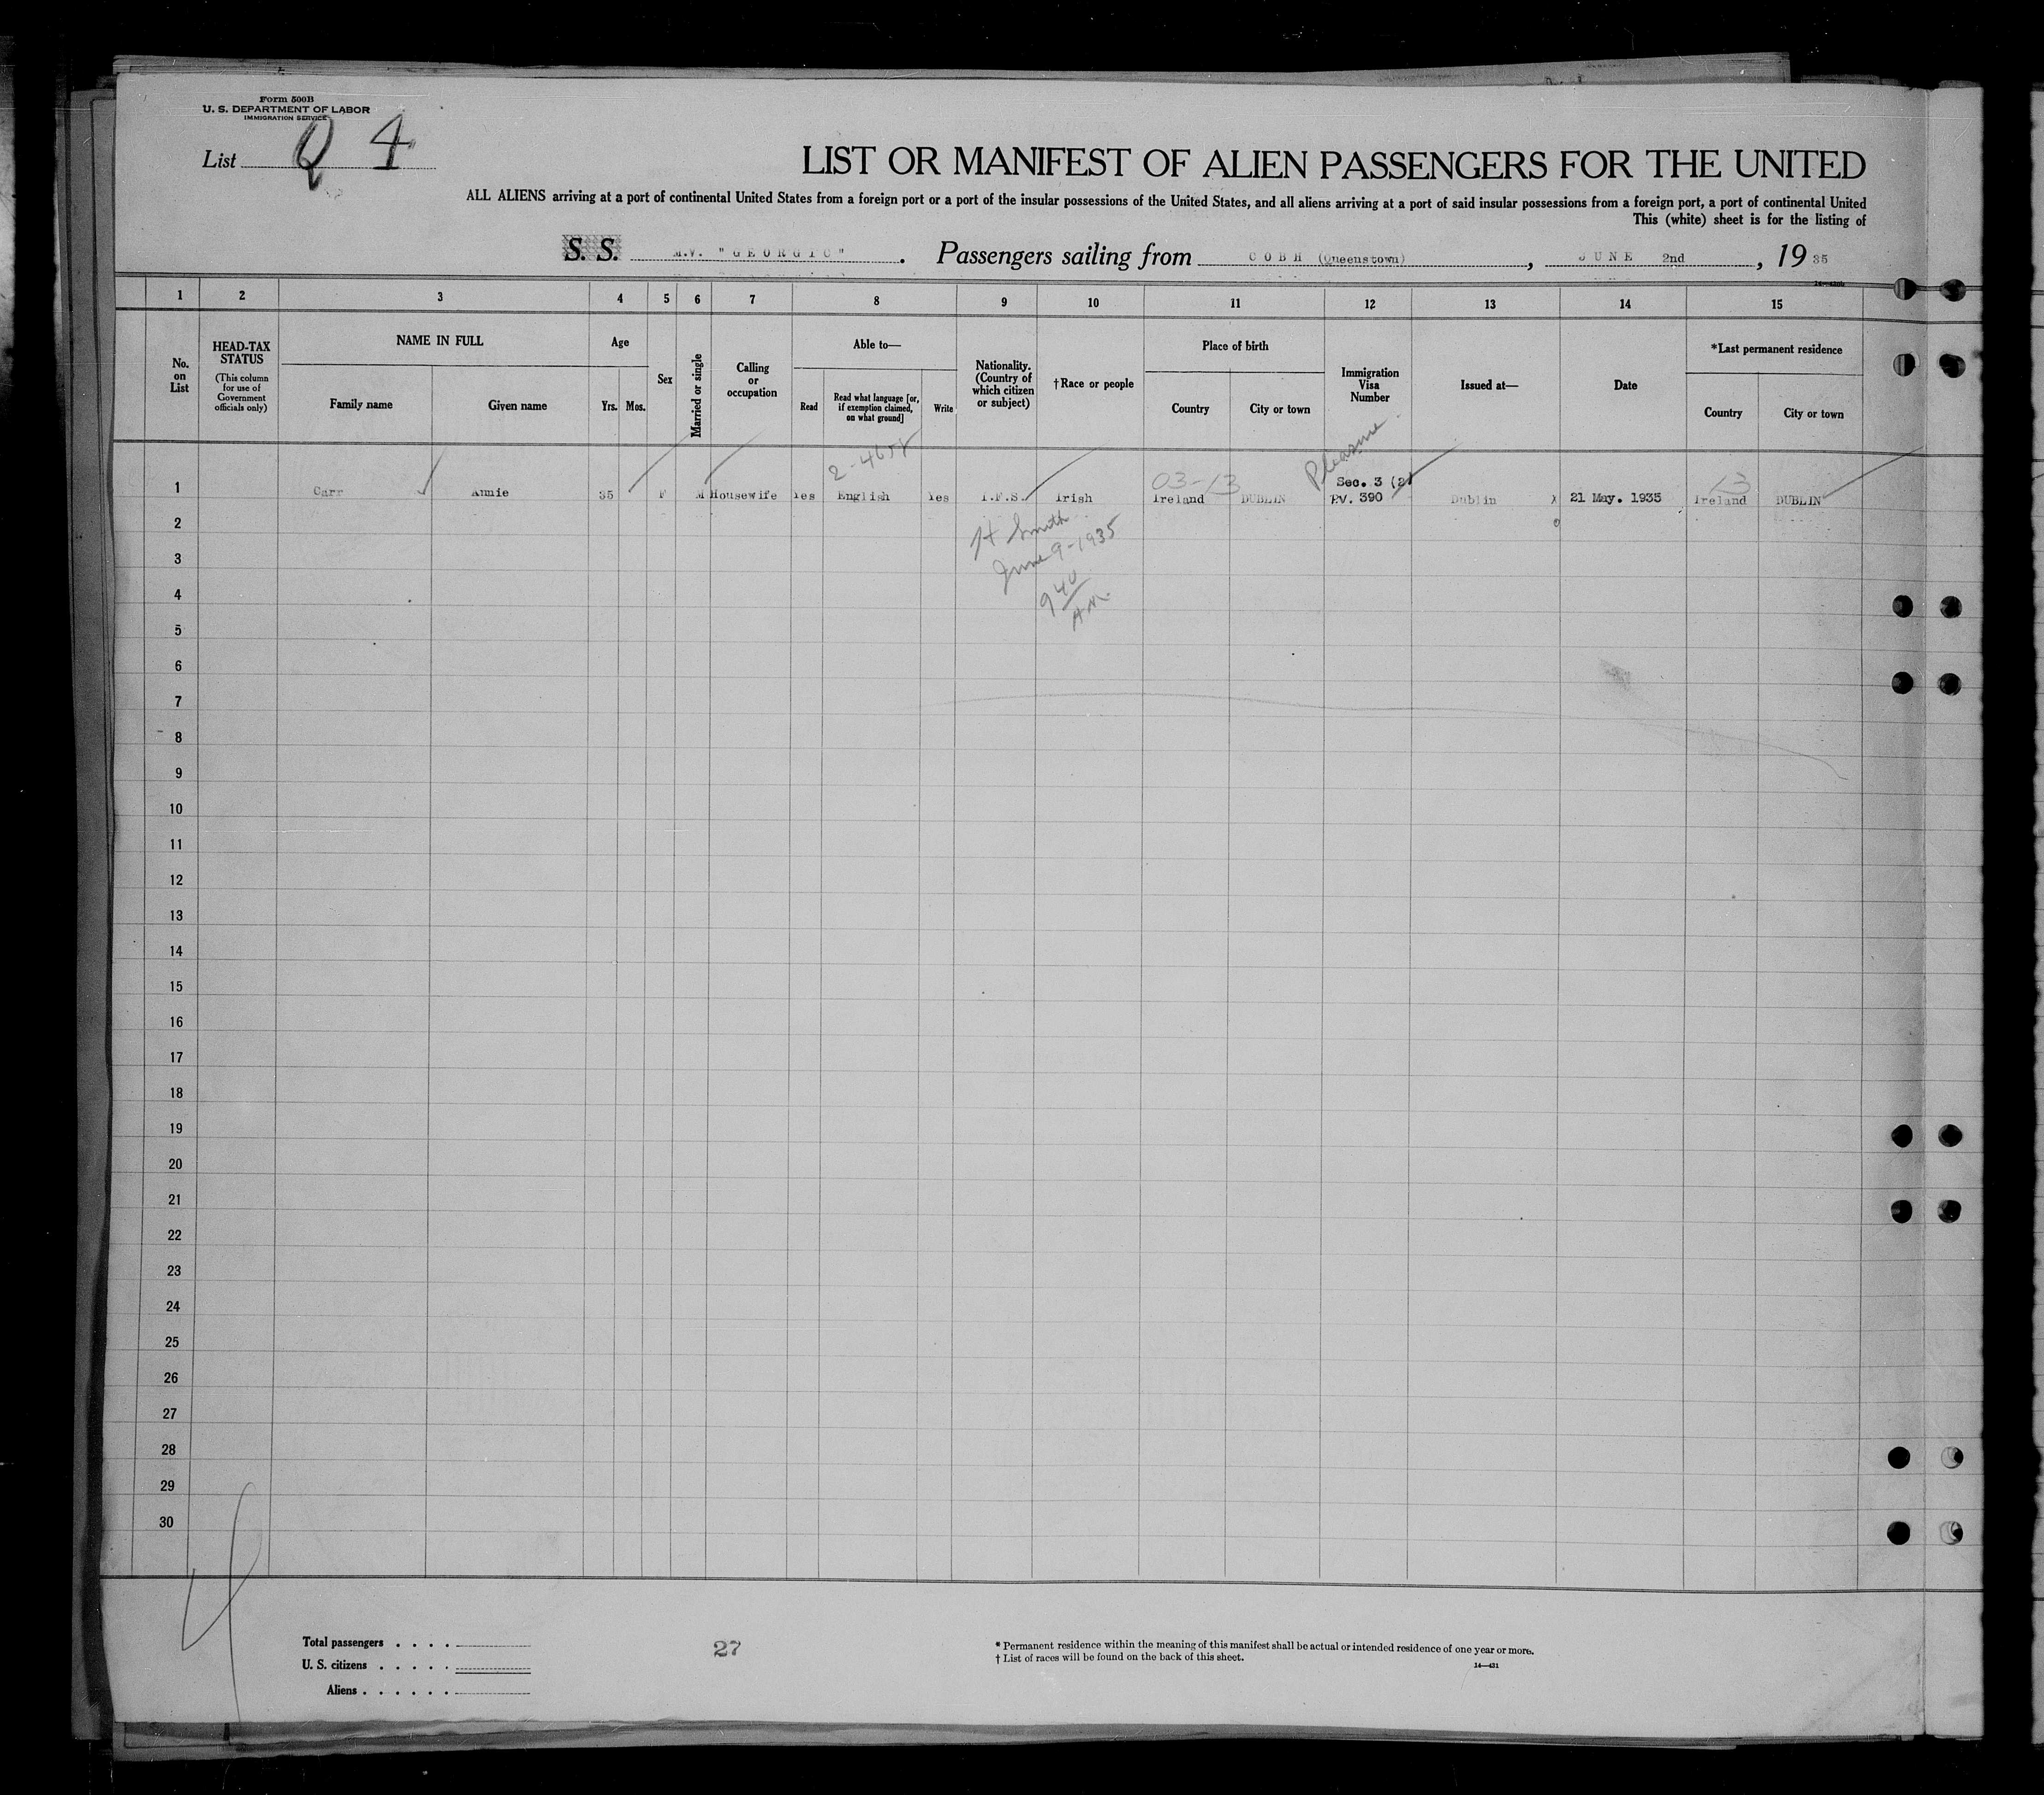 Form 500B
U. S. DEPARTMENT OF LABOR
IMMIGRATION SERVICE
List Q 4
LIST OR MANIFEST OF ALIEN PASSENGERS FOR THE UNITED
ALL ALIENS arriving at a port of continental United States from a foreign port or a port of the insular possessions of the United States, and all aliens arriving at a port of said insular possessions from a foreign port, a port of continental United
This (white) sheet is for the listing of
S. S. M.V. "GEORGIC". Passengers sailing from COBH (Queenstown), JUNE 2nd, 1935
1 2 3 4 5 6 7 8 9 10 11 12 13 14 15
No. on List
HEAD-TAX STATUS
(This column for use of Government officials only)
NAME IN FULL
Family name
Given name
Age
Yrs. Mos.
Sex
Married or single
Calling or occupation
Able to—
Read
Read what language [or, if exemption claimed, on what ground]
Write
Nationality. (Country of which citizen or subject)
†Race or people
Place of birth
Country
City or town
Immigration Visa Number
Issued at—
Date
*Last permanent residence
Country
City or town
Pleasure
03-13
13
Sec. 3 (2)
1 Carr Annie 35 F M Housewife Yes English Yes I.F.S. Irish Ireland DUBLIN PV. 390 Dublin 21 May. 1935 Ireland DUBLIN
H Smith
June 9-1935
9 40
AM.
2
3
4
5
6
7
8
9
10
11
12
13
14
15
16
17
18
19
20
21
22
23
24
25
26
27
28
29
30
Total passengers . . . .
U. S. citizens . . . . .
Aliens . . . . . .
27
* Permanent residence within the meaning of this manifest shall be actual or intended residence of one year or more.
† List of races will be found on the back of this sheet.
14—431